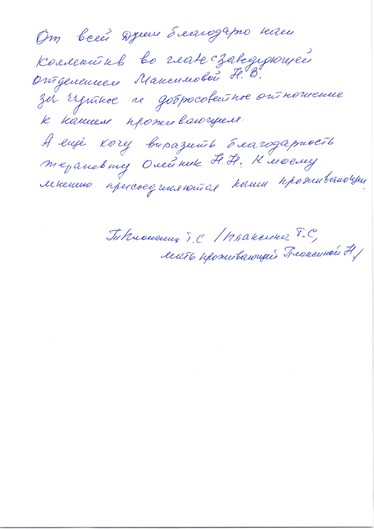 От всей души благодарю наш
коллектив во главе с заведующей
отделением Максимовой Н.В.
за чуткое и добросовестное отношение
к нашем проживающем.
А ещё хочу выразить благодарность
терапевту Олейник Н.Н. К моему
мнению присоединяются наши проживающие.
Т.С /Плаксина Т.С,
мать проживающей Плаксиной Н/